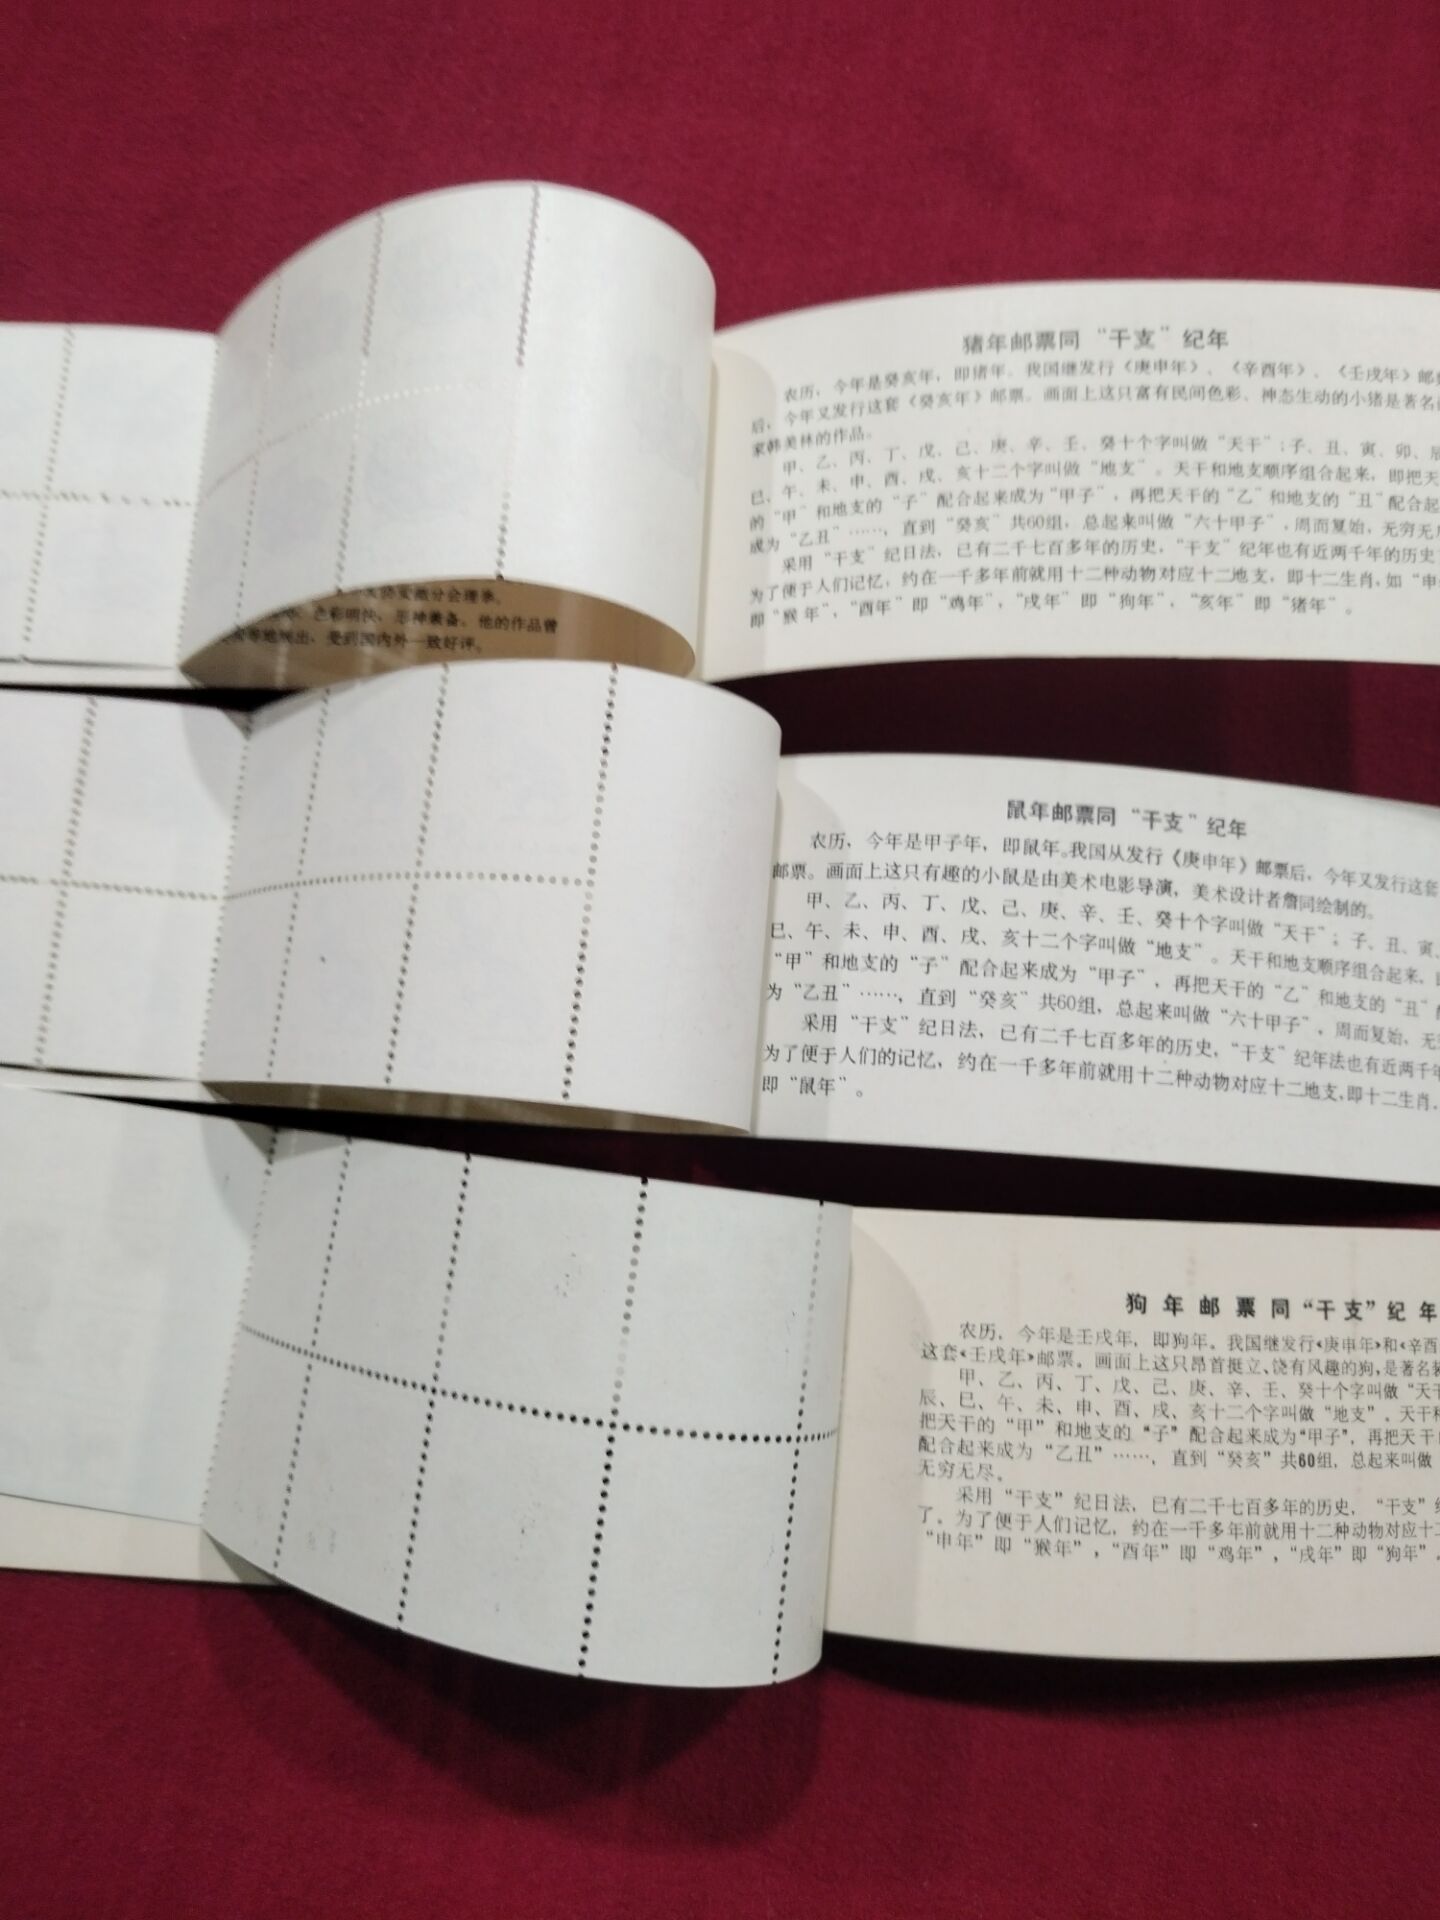 猪年邮票同“干支”纪年
农历，今年是癸亥年，即猪年。我国继发行《庚申年》、《辛酉年》、《壬戌年》邮
后，今年又发行这套《癸亥年》邮票。画面上这只富有民间色彩、神态生动的小猪是著名
家韩美林的作品。
甲、乙、丙、丁、戊、己、庚、辛、壬、癸十个字叫做“天干”；子、丑、寅、卯、辰
巳、午、未、申、酉、戌、亥十二个字叫做“地支”。天干和地支顺序组合起来，即把天
的“甲”和地支的“子”配合起来成为“甲子”，再把天干的“乙”和地支的“丑”配合起
成为“乙丑”……，直到“癸亥”共60组，总起来叫做“六十甲子”，周而复始，无穷无
采用“干支”纪日法，已有二千七百多年的历史，“干支”纪年也有近两千年的历史
为了便于人们记忆，约在一千多年前就用十二种动物对应十二地支，即十二生肖，如“申
即“猴年”，“酉年”即“鸡年”，“戌年”即“狗年”，“亥年”即“猪年”。
分会理事。
色彩明快，形神兼备。他的作品曾
等地展出，受到国内外一致好评。
鼠年邮票同“干支”纪年
农历，今年是甲子年，即鼠年。我国从发行《庚申年》邮票后，今年又发行这套
邮票。画面上这只有趣的小鼠是由美术电影导演，美术设计者詹同绘制的。
甲、乙、丙、丁、戊、己、庚、辛、壬、癸十个字叫做“天干”；子、丑、寅、
巳、午、未、申、酉、戌、亥十二个字叫做“地支”。天干和地支顺序组合起来，
“甲”和地支的“子”配合起来成为“甲子”，再把天干的“乙”和地支的“丑”
为“乙丑”……，直到“癸亥”共60组，总起来叫做“六十甲子”，周而复始，无
采用“干支”纪日法，已有二千七百多年的历史，“干支”纪年法也有近两千年
为了便于人们的记忆，约在一千多年前就用十二种动物对应十二地支，即十二生肖，
即“鼠年”。
狗年邮票同“干支”纪年
农历，今年是壬戌年，即狗年。我国继发行《庚申年》和《辛酉
这套《壬戌年》邮票。画面上这只昂首挺立、饶有风趣的狗，是著名
甲、乙、丙、丁、戊、己、庚、辛、壬、癸十个字叫做“天干
辰、巳、午、未、申、酉、戌、亥十二个字叫做“地支”。天干
把天干的“甲”和地支的“子”配合起来成为“甲子”，再把天干
配合起来成为“乙丑”……，直到“癸亥”共60组，总起来叫做
无穷无尽。
采用“干支”纪日法，已有二千七百多年的历史，“干支”纪
了。为了便于人们记忆，约在一千多年前就用十二种动物对应十二
“申年”即“猴年”，“酉年”即“鸡年”，“戌年”即“狗年”，